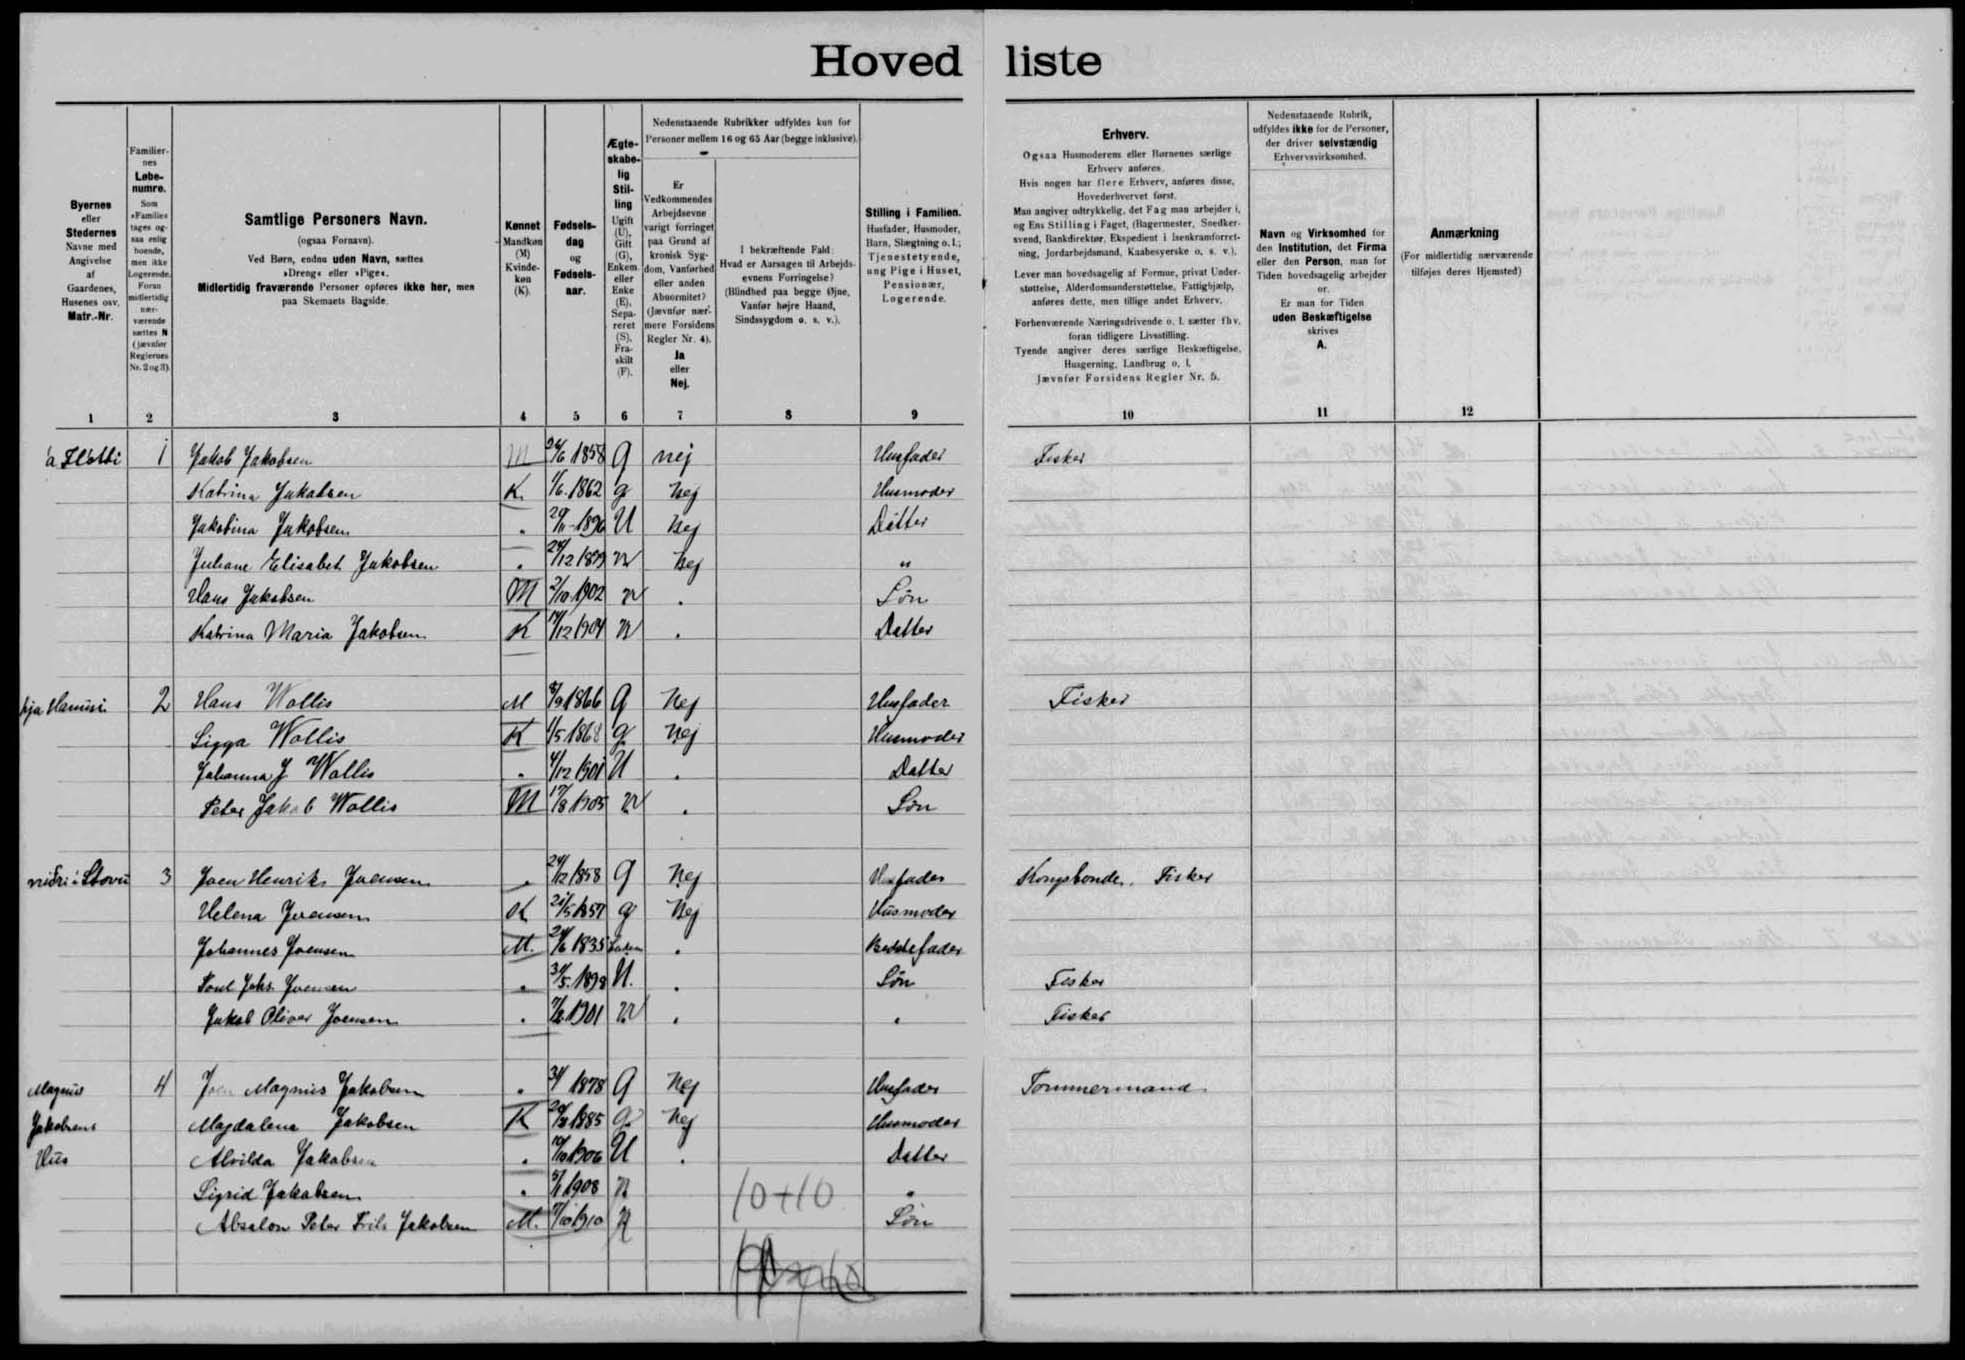 Hoved liste
Byernes eller Stedernes Navne med Angivelse af Gaardenes, Husenes osv. Matr.-Nr.
Familiernes Løbenumre. Som »Familie« tages ogsaa enlig boende, men ikke Logerende. Foran midlertidig nærværende sættes N (jævnfør Reglernes Nr. 2 og 3)
Samtlige Personers Navn.
(ogsaa Fornavn).
Ved Børn, endnu uden Navn, sættes
»Dreng« eller »Pige«.
Midlertidig fraværende Personer opføres ikke her, men
paa Skemaets Bagside.
Kønnet Mandkøn (M) Kvindekøn (K).
Fødselsdag og Fødselsaar.
Ægteskabelig Stilling Ugift (U), Gift (G), Enkem. eller Enke (E), Separeret (S), Fraskilt (F).
Nedenstaaende Rubrikker udfyldes kun for
Personer mellem 16 og 65 Aar (begge inklusive).
Er Vedkommendes Arbejdsevne varigt forringet paa Grund af kronisk Sygdom, Vanførhed eller anden Abnormitet? (Jævnfør nærmere Forsidens Regler Nr. 4). Ja eller Nej.
I bekræftende Fald: Hvad er Aarsagen til Arbejdsevnens Forringelse? (Blindhed paa begge Øjne, Vanfør højre Haand, Sindssygdom o. s. v.).
Stilling i Familien. Husfader, Husmoder, Barn, Slægtning o. l.; Tjenestetyende, ung Pige i Huset, Pensionær, Logerende.
Erhverv.
Ogsaa Husmoderens eller Børnenes særlige
Erhverv anføres.
Hvis nogen har flere Erhverv, anføres disse,
Hovederhvervet først.
Man angiver udtrykkelig, det Fag man arbejder i,
og Ens Stilling i Faget, (Bagermester, Snedker-
svend, Bankdirektør, Ekspedient i Isenkramforret-
ning, Jordarbejdsmand, Kaabesyerske o. s. v.).
Lever man hovedsagelig af Formue, privat Under-
støttelse, Alderdomsunderstøttelse, Fattighjælp,
anføres dette, men tillige andet Erhverv.
Forhenværende Næringsdrivende o. l. sætter fhv.
foran tidligere Livsstilling.
Tyende angiver deres særlige Beskæftigelse,
Husgerning, Landbrug o. l.
Jævnfør Forsidens Regler Nr. 5.
Nedenstaaende Rubrik, udfyldes ikke for de Personer, der driver selvstændig Erhvervsvirksomhed.
Navn og Virksomhed for den Institution, det Firma eller den Person, man for Tiden hovedsagelig arbejder or.
Er man for Tiden uden Beskæftigelse skrives A.
Anmærkning
(For midlertidig nærværende tilføjes deres Hjemsted)
1 2 3 4 5 6 7 8 9 10 11 12
1 Jakob Jakobsen M 26/6 1858 G nej Husfader Fisker
Katrina Jakobsen K. 1/6. 1862 g Nej Husmoder
Jakobina Jakobsen 1896 U Nej Datter
Juliane Elisabet Jakobsen 24/12 1899 Nej "
Hans Jakobsen M 2/10. 1902 Søn
Katrina Maria Jakobsen K 14/12 1904 Datter
2 Hans Wollis M 8/9 1866 G Nej Husfader Fisker
Sigga Wollis K 1/5 1868 g Nej Husmoder
Johanna J Wollis 4/12 1901 U Datter
Peter Jakob Wollis M 17/8 1905 Søn
3 Joen Henrik Joensen 24/12 1858 G Nej Husfader Kongsbonde, Fisker
Helena Joensen K 21/5 1857 g Nej Husmoder
Johannes Joensen M. 24/6 1835 Bedstefader
Poul Johs. Joensen 31/5. 1898 U. Søn Fisker
Jakob Oliver Joensen 1901 Fisker
Magnus 4 Joen Magnus Jakobsen 1878 G Nej Husfader Tømmermand
Jakobsens Magdalena Jakobsen K 1885 g Nej Husmoder
Hus Alvilda Jakobsen 1906 U Datter
Sigrid Jakobsen 1908
10+10
Absalon Peter Jakobsen M. 7/10 1910 Søn